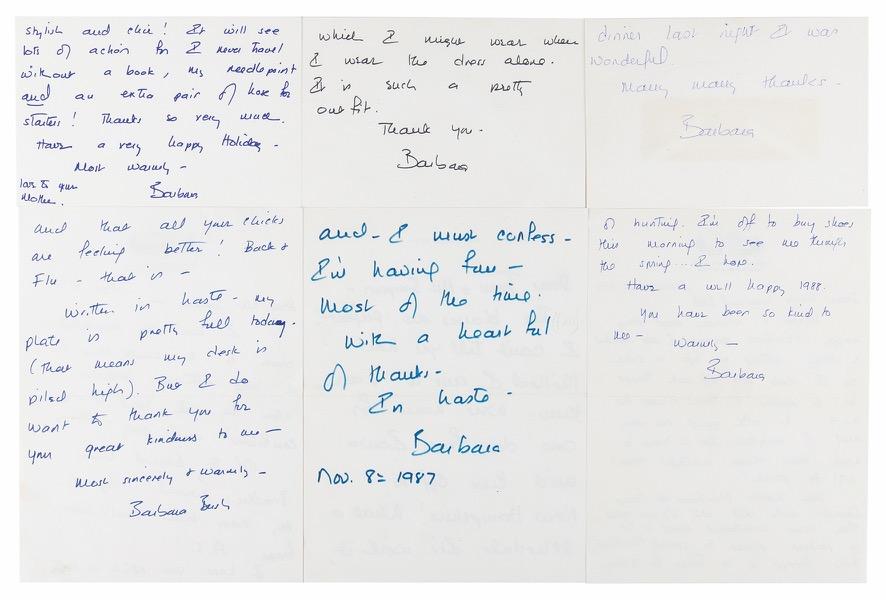 stylish and chic! It will see
lots of action for I never travel
without a book, my needlepoint
and an extra pair of hose for
starters! Thanks so very much.
Have a very happy Holiday -
Most warmly -
Barbara
love to your
Mother.
which I might wear when
I wear the dress alone.
It is such a pretty
outfit.
Thank you -
Barbara
dinner last night It was
wonderful.
Many many thanks -
Barbara
and that all your chicks
are feeling better! Back &
Flu - that is -
Written in haste - my
plate is pretty full today.
(That means my desk is
piled high). But I do
want to thank you for
your great kindness to me -
Most sincerely & warmly -
Barbara Bush
and - I must confess -
I'm having fun -
most of the time.
With a heart full
of thanks -
In haste -
Barbara
Nov. 8 = 1987
of hunting. I'm off to buy shoes
this morning to see me through
the spring.... I hope.
Have a happy 1988.
You have been so kind to
me -
Warmly -
Barbara